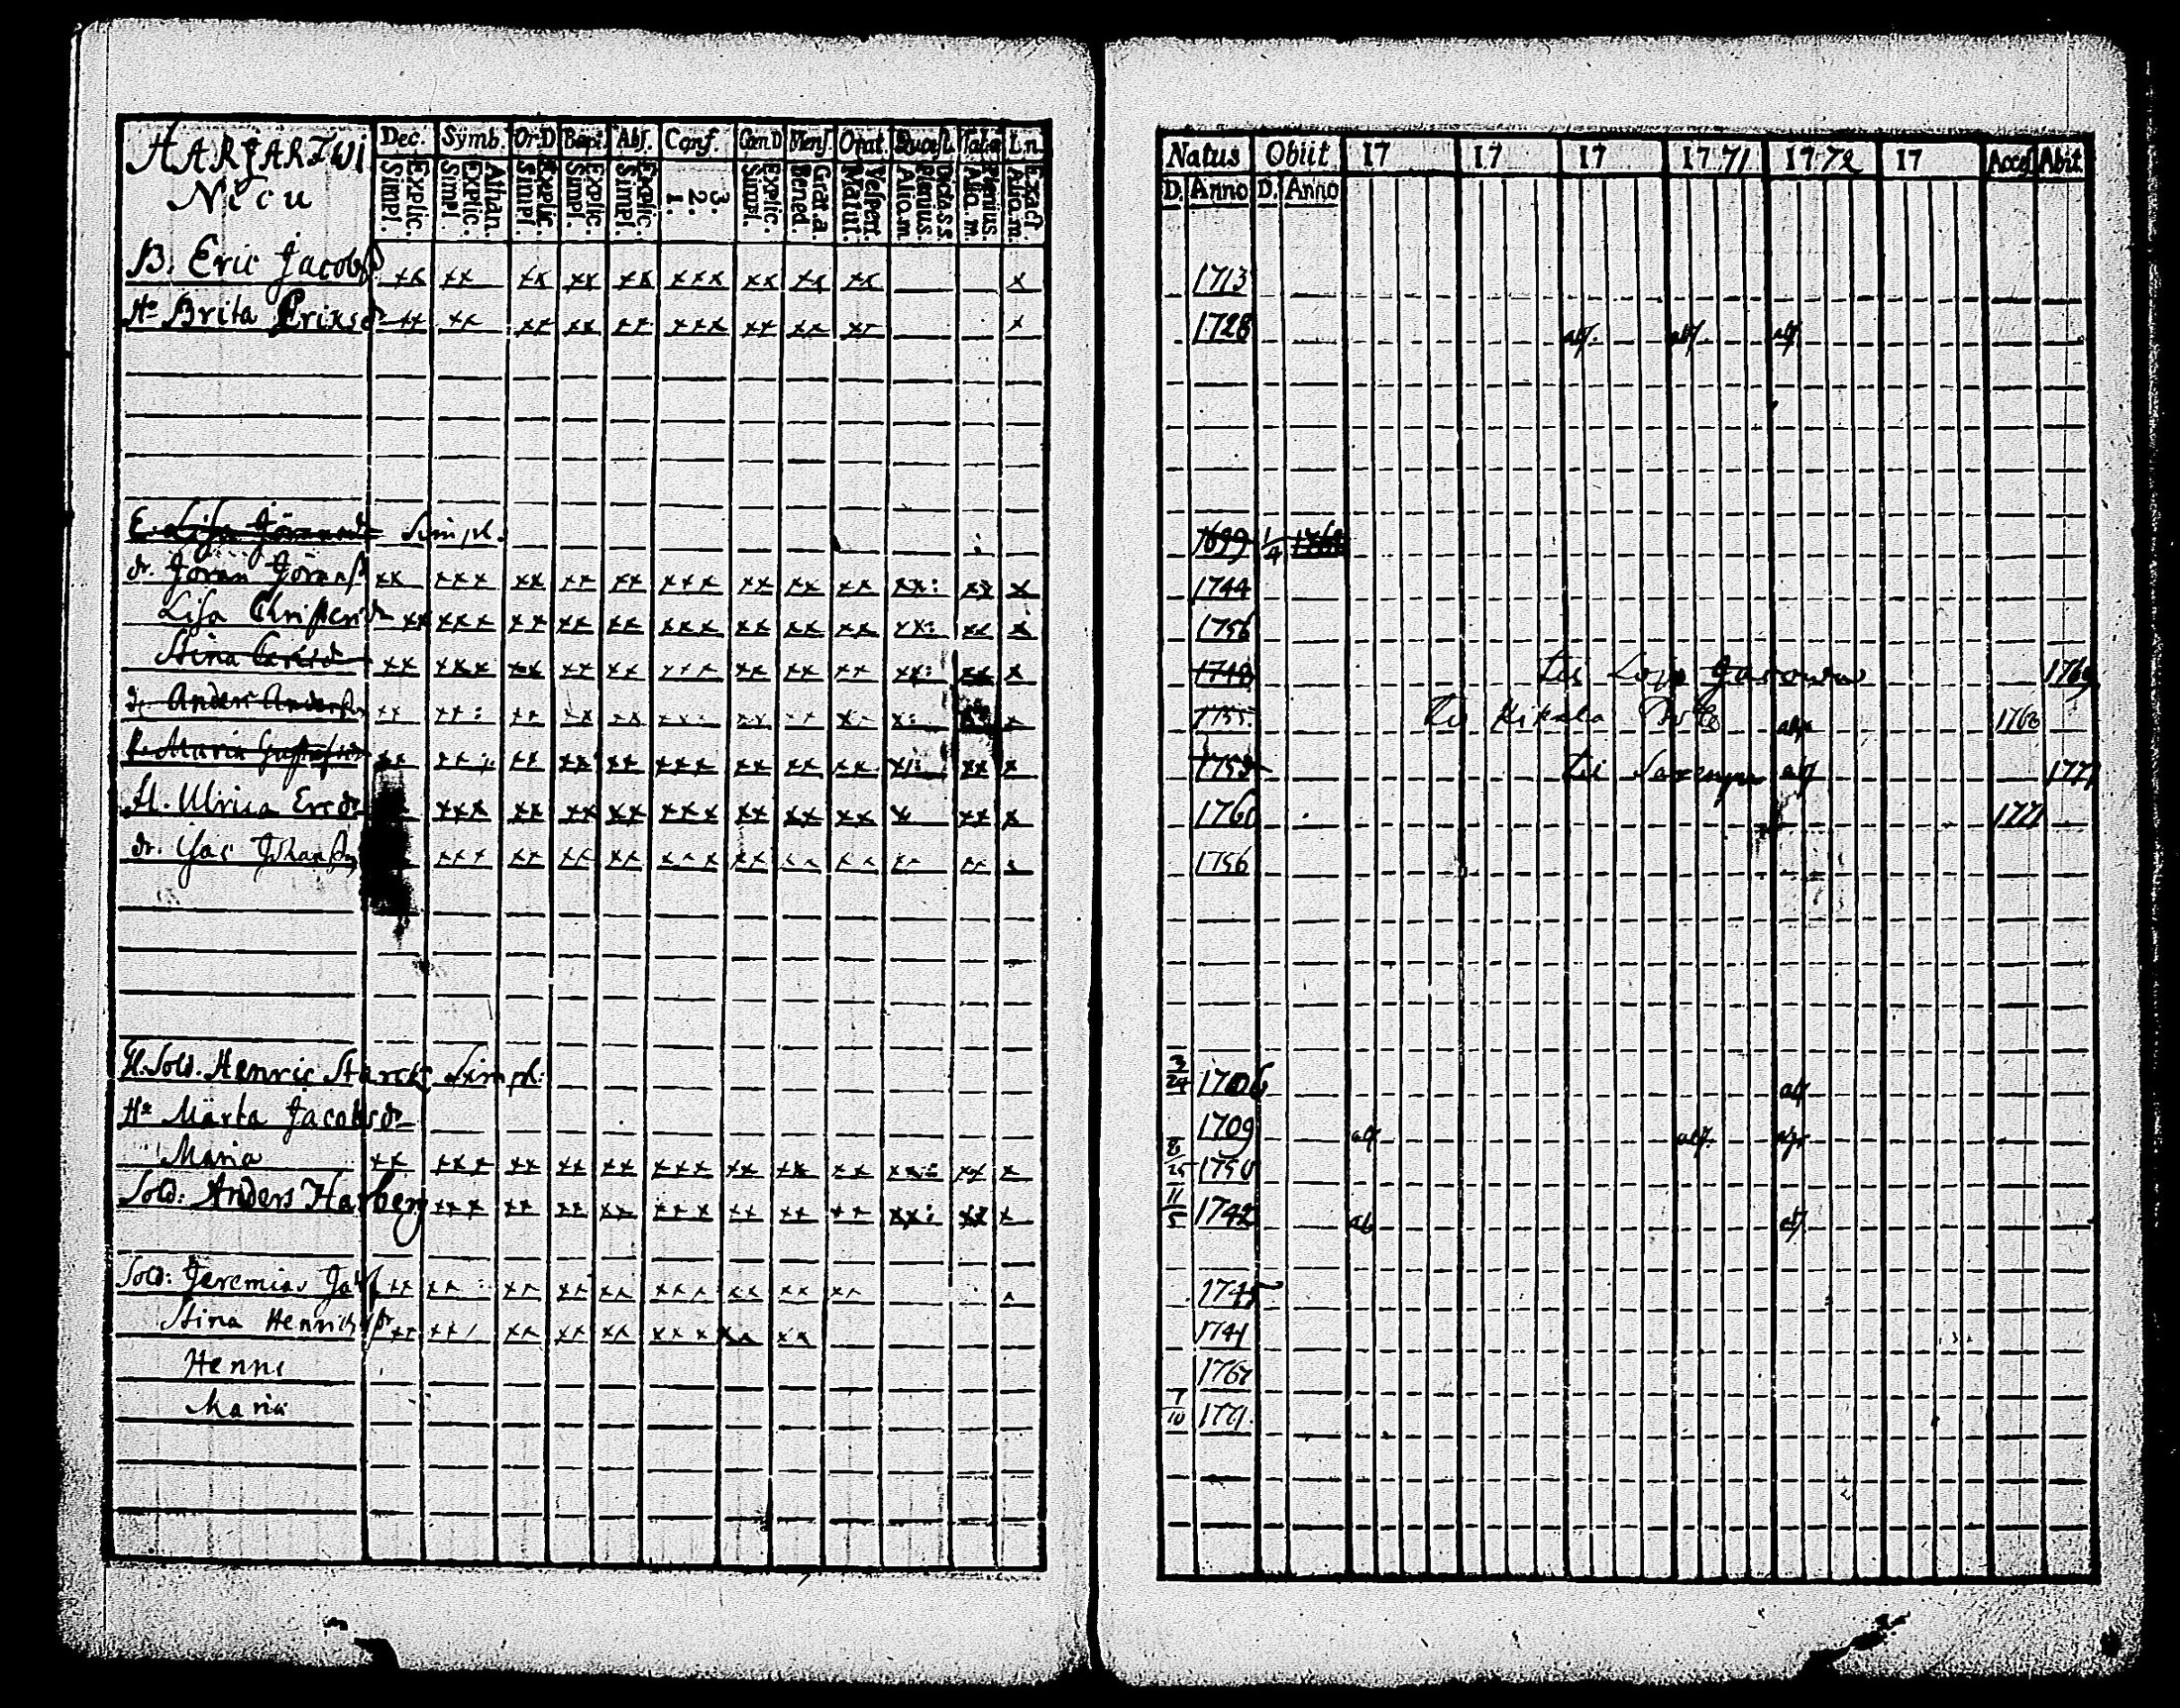 HARJARFWI
Nicu
Dec. Symb. Or.D Bapt. Abs. Conf. Cœn.D Mens. Orat. Quæst. Tab.œ Ln.
Explic. Simpl. Athan. Explic. Simpl. Explic. Simpl. Explic. Simpl. Explic. Simpl. 3. 2. 1. Explic. Simpl. Grat.a. Bened. Vesper. Matut. Dicta s.s. Plenius. Aliq.m Plenius. Aliq.m. Exact. Aliq.m.
B. Eric Jacobss xx xx xx xx xx xxx xx xx xx x
Hu Brita Eriksdr xx xx xx xx xx xxx xx xx xx x
E. Lisa Jöransdr Simpl.
dr. Jöran Jöranss xx xxx xx xx xx xxx xx xx xx xx: xx x
Lisa Christersdr xx xxx xx xx xx xxx xx xx xx xx: xx x
Stina xx xxx xx xx xx xxx xx xx xx xx: xx x
dr Anders Anderss xx xx: xx xx xx xxx xx xx xx x: x
P. Maria Gustafsdr xx xx: xx xx xx xxx xx xx xx xx: xx x
H. Ulrica Ersdr xxx xx xx xx xxx xx xx xx x xx x
dr. Johanss xxx xx xx xx xxx xx xx xx xx xx x
Gl. Sold. Henric Starck Simpl:
Hu Märta Jacobsdr
Maria xx xxx xx xx xx xxx xx xx xx xx: xx x
Sold: Anders Harberg xxx xx xx xx xxx xx xx xx xx: xx x
Sold: Jeremias xx xx: xx xx xx xxx xx xx xx x
Stina Henrichsdr xx xxx xx xx xx xxx xx xx
Henric
Maria
Natus Obiit 17 17 17 1771 1772 17 Access Abit
D. Anno D. Anno
1713
1728 abs. abs. abs
1699 1/4
1744
1756
1748 til Lojo 1769
1755 til Kikala abs 1768
1753 til abs 1771
1760 1771
1756
3/24 1706 abs
1709 abs abs. abs
8/25 1750
11/5 1742 ab abs
1745
1741
1767
7/10 1771.